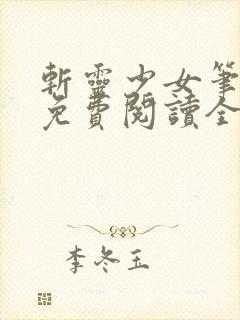 斬靈少女筆
免費閱讀全
李冬玉